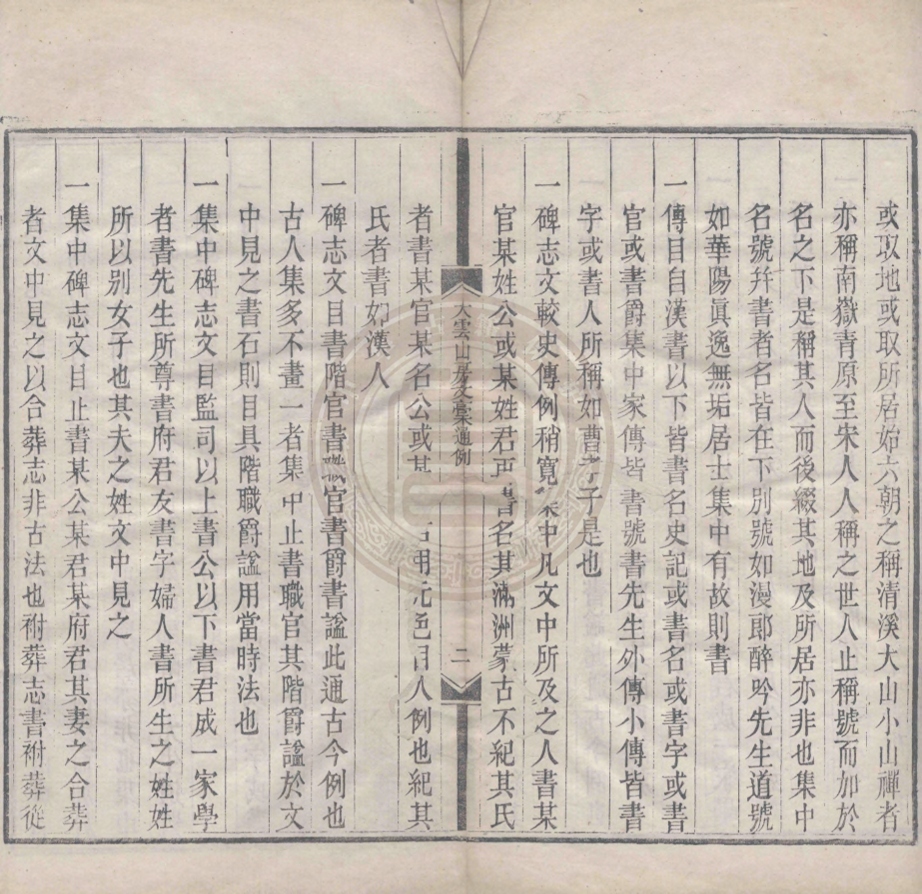 或取地或取所居始六朝之稱清溪大山小山禪者
亦稱南嶽青原至宋人人稱之世人止稱號而加於
名之下是稱其人而後綴其地及所居亦非也集中
名號幷書者名皆在下別號如漫郎醉吟先生道號
如華陽眞逸無垢居士集中有故則書
一傳目自漢書以下皆書名史記或書名或書字或書
官或書爵集中家傳皆書號書先生外傳小傳皆書
字或書人所稱如曹孝子是也
一碑志文較史傳例稍寬集中凡文中所及之人書某
官某姓公或某姓君再書名其滿洲蒙古不紀其氏
大雲山房文稾通例
二
者書某官某名公或某名用元色目人例也紀其
氏者書如漢人
一碑志文目書階官書職官書爵書諡此通古今例也
古人集多不畫一者集中止書職官其階爵諡於文
中見之書石則目具階職爵諡用當時法也
一集中碑志文目監司以上書公以下書君成一家學
者書先生所尊書府君友書字婦人書所生之姓姓
所以別女子也其夫之姓文中見之
一集中碑志文目止書某公某君某府君其妻之合葬
者文中見之以合葬志非古法也祔葬志書祔葬從